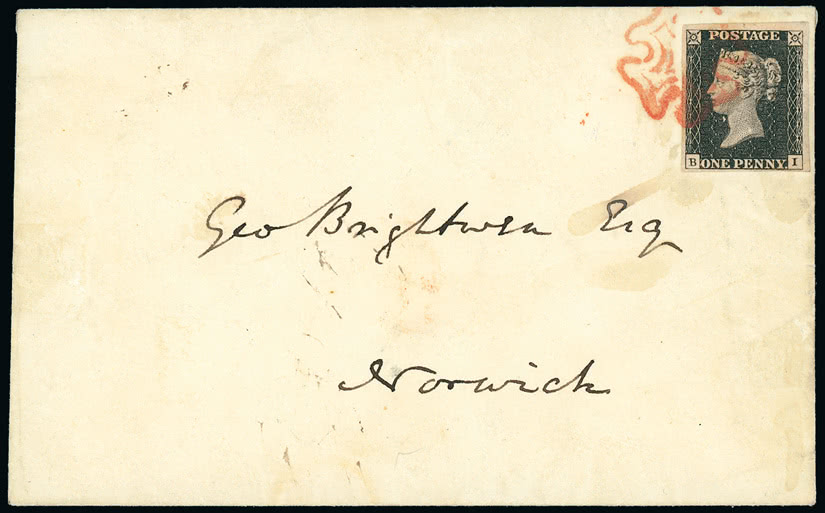 POSTAGE
B ONE PENNY. I
Geo Brightwen Esq
Norwich